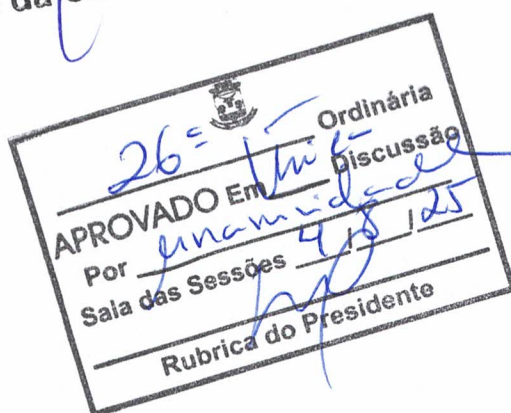 da
26ª Ordinária
APROVADO Em Única Discussão
Por unanimidade
Sala das Sessões 4/8/25
Rubrica do Presidente